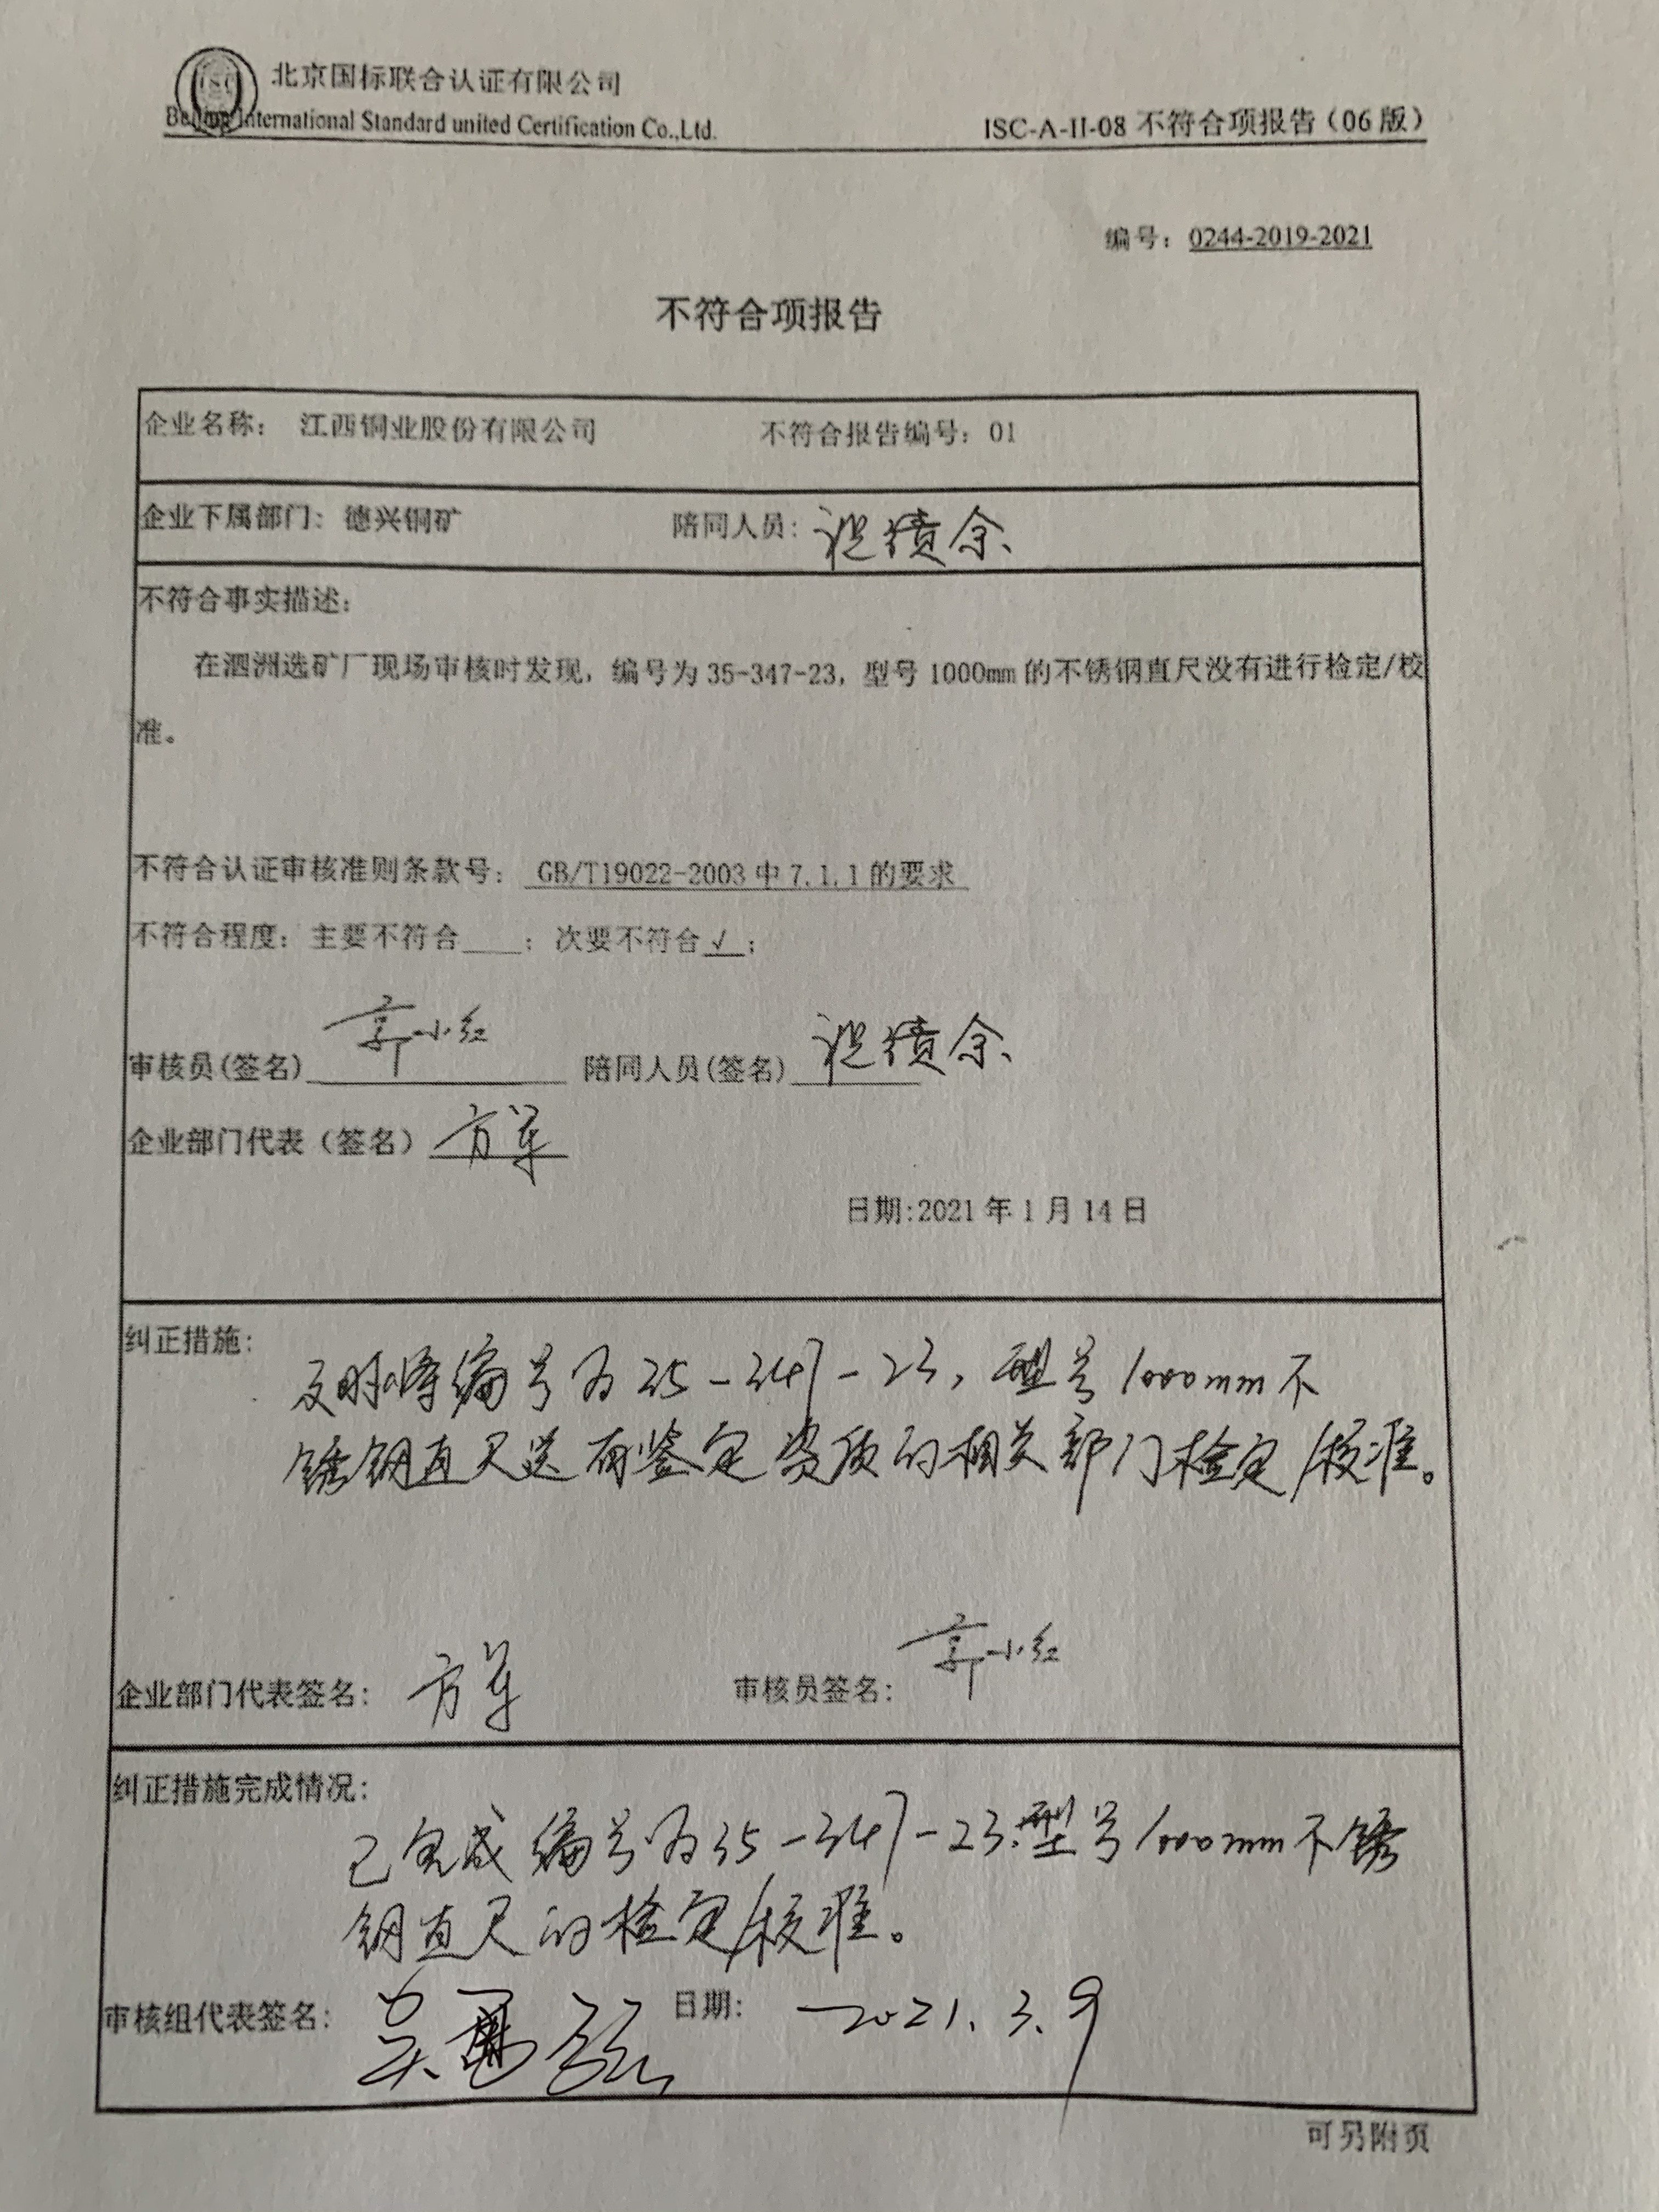 ISC
北京国标联合认证有限公司
Beijing International Standard united Certification Co.,Ltd.
ISC-A-II-08 不符合项报告（06版）
编号：0244-2019-2021
不符合项报告
企业名称： 江西铜业股份有限公司 不符合报告编号：01
企业下属部门：德兴铜矿 陪同人员：
不符合事实描述：
在泗洲选矿厂现场审核时发现，编号为 35-347-23，型号 1000mm 的不锈钢直尺没有进行检定/校
准。
不符合认证审核准则条款号： GB/T19022-2003 中 7.1.1 的要求
不符合程度：主要不符合____；次要不符合√；
审核员(签名) 郭小红 陪同人员(签名)
企业部门代表（签名）方军
日期:2021 年 1 月 14 日
纠正措施：
及时将编号为35-347-23，型号1000mm不
锈钢直尺送有鉴定资质的相关部门检定/校准。
企业部门代表签名： 方军 审核员签名： 郭小红
纠正措施完成情况：
已完成编号为35-347-23.型号1000mm不锈
钢直尺的检定/校准。
审核组代表签名： 日期： 2021.3.9
可另附页